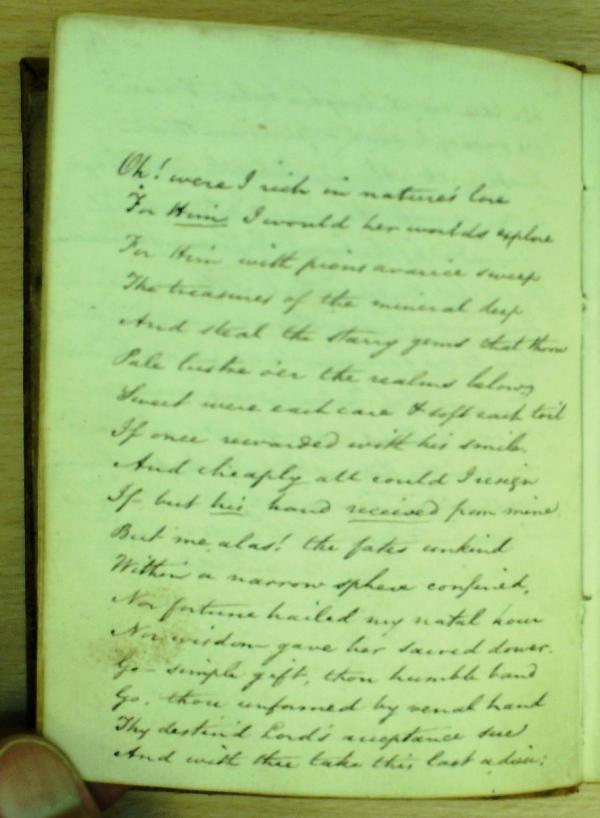 Oh! were I rich in nature's lore
For Him I would her worlds explore
For Him with pious avarice sweep
The treasures of the mineral deep
And steal the starry gems that throw
Pale lustre o'er the realms below,
Sweet were each care & soft each toil
If once rewarded with his smile.
And cheaply all could I resign
If but his hand received from mine.
But me alas! the fates unkind
Within a narrow sphere confin'd,
Nor fortune hailed my natal hour
Nor wisdom gave her sacred dower.
Go simple gift, thou humble band
Go, thou unformed by venal hand
Thy destin'd Lord's acceptance sue
And with thee take this last adieu: